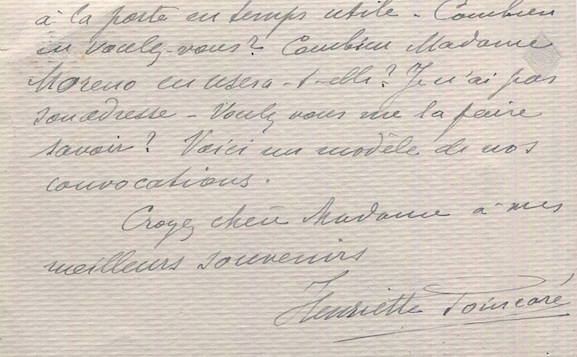 à la poste en temps utile - Combien
en voulez-vous? Combien Madame
Moreno en usera-t-elle? Je n'ai pas
son adresse - Voulez vous me la faire
savoir? Voici un modèle de nos
convocations.
Croyez chère Madame à mes
meilleurs souvenirs
Henriette Poincaré